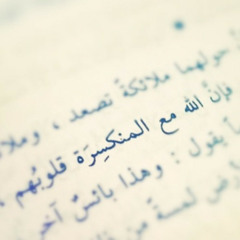 حولهما ملائكةٌ تصعد ، وملا
فإنّ الله مع المنكسِرَة قلوبُهم .
يقول : وهذا بائسٌ آخر